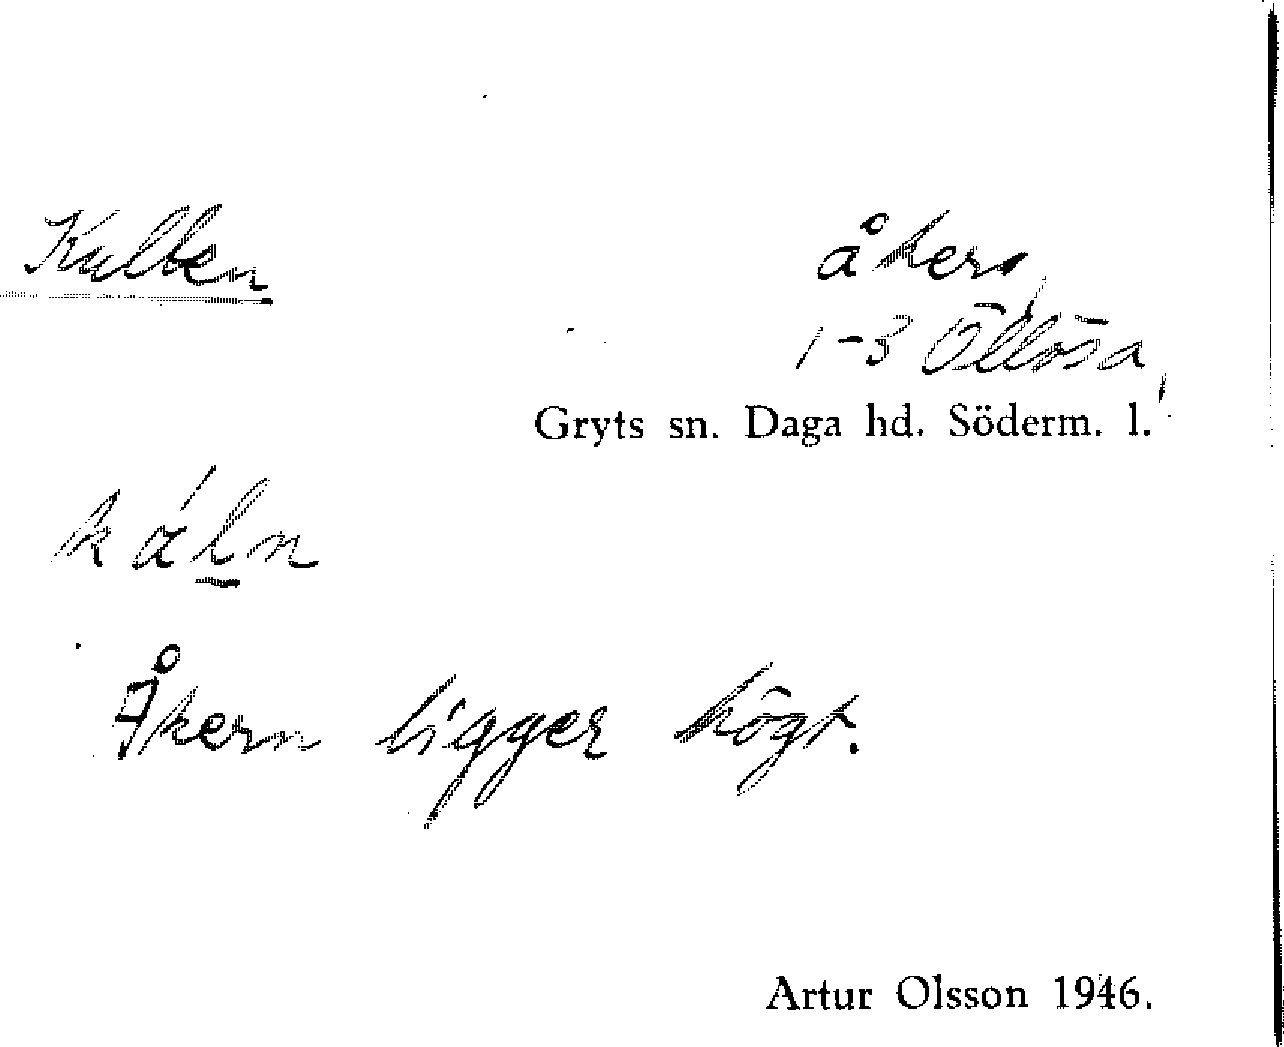 Kullen
åker,
1-3 Öllösa,
Gryts sn. Daga hd. Söderm. l.
káln
Åkern ligger högt.
Artur Olsson 1946.